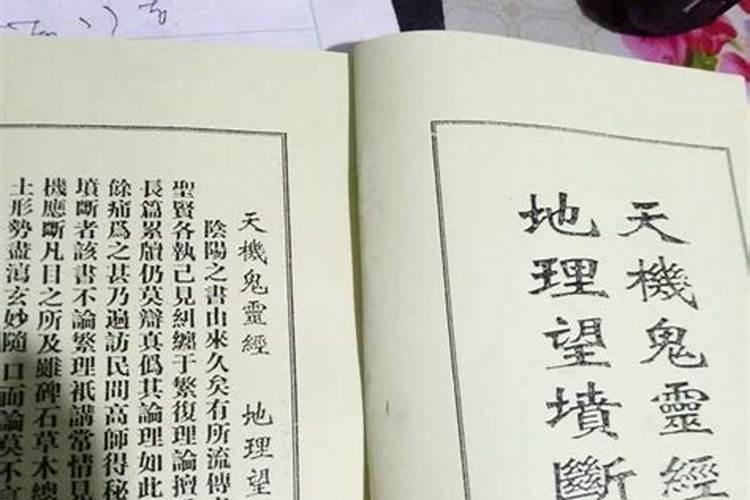 天機鬼靈經
地理望墳斷
天機鬼靈經 地理望
陰陽之書由來久矣有所流傳
聖賢各執己見糾纏于繁復理論擅
長篇累牘仍莫辯真僞其論理如此
餘痛爲之甚乃遍訪民間高師得秘
墳斷者該書不論繁理祇講常情見
機應斷凡目之所及雖碑石草木總
土形勢盡演玄妙隨口而論莫不